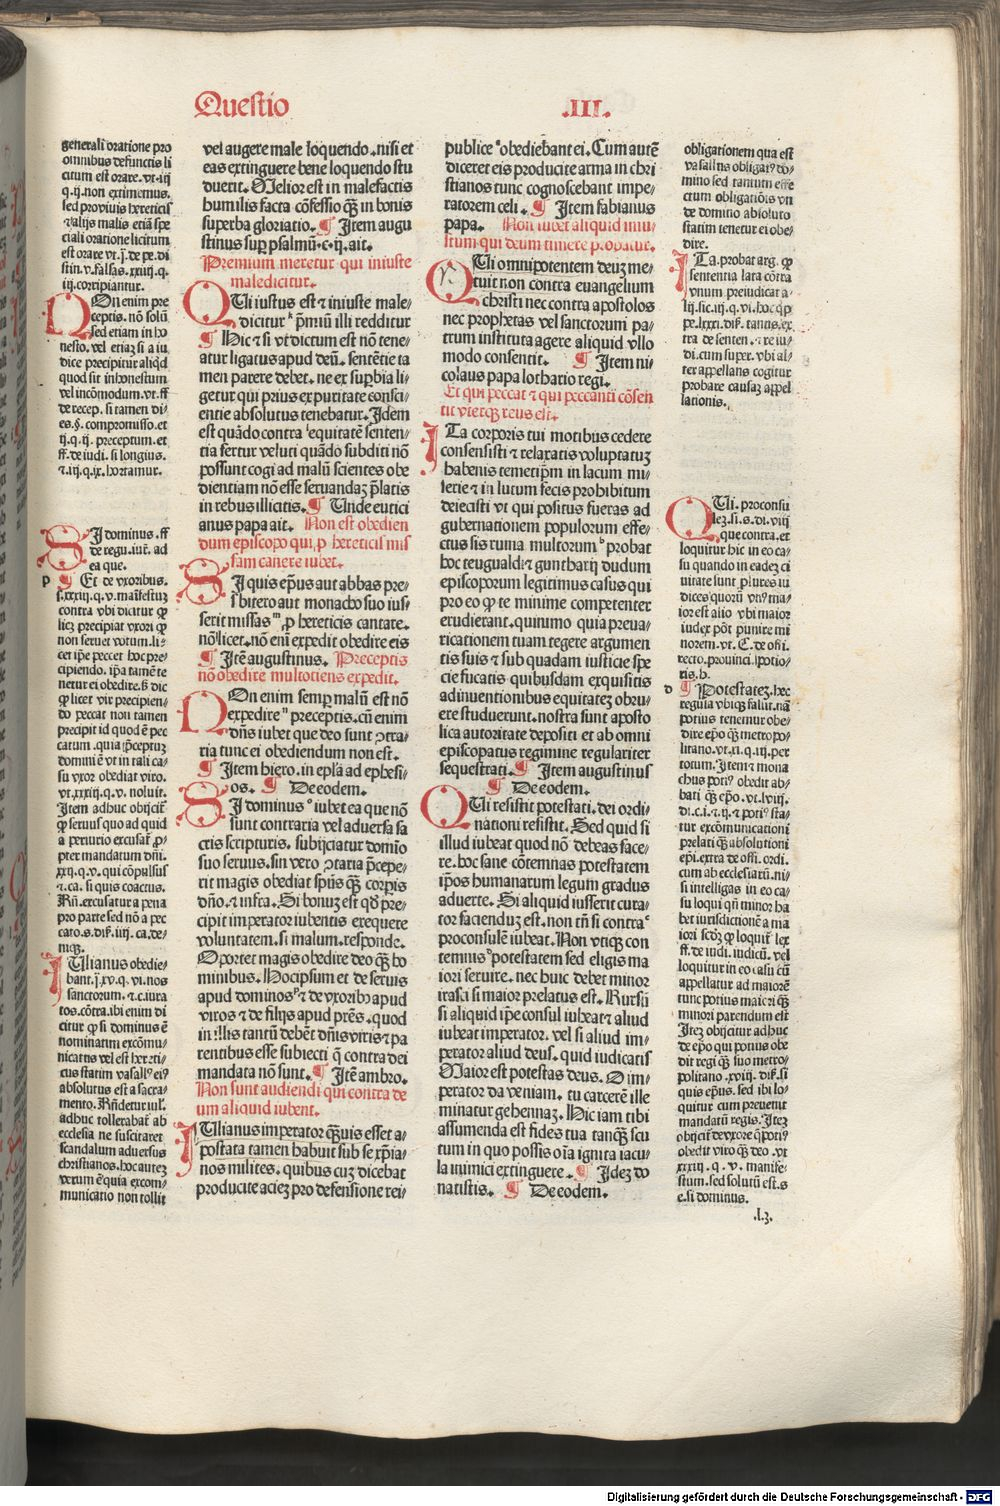 Questio .III.
generali oratione pro
omnibus defunctis li
citum est orare .vt .iij
q .ij. non extimemus.
sed pro viuis hereticis
⁊ alijs malis etiā spe
ciali oratione licitum
est orare vt .j. de pe. di
stin. v. falsas. xxiiij. q.
iij. corripiantur.
NOn enim pre
ceptis. nō solū
sed etiam in ho
nesto. vel etiaꝫ si a iu
dice precipitur aliqd
quod sit inhonestum
vel incōmodum .vt .ff
de recep. si tamen di-
es. §. compromisso. et
ij. q. ij. preceptum. et
ff. de iudi. si longius.
⁊ iij. q. ix. hortamur.
SI dominus. ff
de regu. iur̄. ad
ea que.
p ¶ Et de vxoribus.
contra vbi dicitur ꝙ
licꝫ precipiat vxori ꝙ
non seruet votum. li-
cet ipe peccet hoc pre-
cipiendo. ip̄a tamē te
netur ei obedire. sꝫ dic
ꝙ licet vir precipien-
do peccat non tamen
precipit id quod ē pec
catum. quia p̄ceptuꝫ
domini ē vt in tali ca-
su vxor obediat viro.
vt .xxxiij. q. v. noluit.
Item adhuc obijcit̄
ꝙ seruus quo ad quid
a periurio excusat̄ ꝓ-
pter mandatum dn̄i.
xxij. q. v. qui cōpulsus
⁊ .ca. si quis coactus.
Rn̄. excusatur a pena
pro parte sed nō a pec
cato. s. dis. iiij. ca. de-
niqꝫ.
IUlianus obedie-
bant .j. xv. q. vi. nos
sanctorum. ⁊ .c. iura
tos. cōtra. ibi enim di
citur ꝙ si dominus ē
nominatim excōmu-
nicatus vel est hereti-
cus statim vasallꝰ eiꝰ
absolutus est a sacra-
mento. Rn̄detur iul̄.
adhuc tollerabat̄ ab
ecclesia ne suscitaret
scandalum aduersus
christianos. hoc autez
verum ē quia excom-
municatio non tollit
vel augere male loquendo .nisi et
eas extinguere bene loquendo stu
duerit. Melior est in malefactis
humilis facta cōfessio qꝫ in bonis
superba gloriatio. ¶ Item augu
stinus sup psalmū .c. ij. ait.
Premium meretur qui iniuste
maledicitur.
QUi iustus est ⁊ iniuste male-
dicitur k p̄miū illi redditur
¶ Hic ⁊ si vt dictum est nō tene-
atur ligatus apud deū. sentētie ta
men parere debet. ne ex supbia li-
getur qui prius ex puritate consci-
entie absolutus tenebatur. Idem
est quādo contra l equitatē senten-
tia fertur veluti quādo subditi nō
possunt cogi ad malū scientes obe
dientiam nō esse seruandaꝫ p̄latis
in rebus illicitis. ¶ Unde eutici
anus papa ait. Non est obedien
dum episcopo qui ꝓ hereticis mis
sam canere iubet.
SI quis ep̄us aut abbas pre-
sbitero aut monacho suo ius-
serit missas m ꝓ hereticis cantare.
nō licet. nō eni expedit obedire eis
¶ Itē augustinus. Preceptis
nō obedire multotiens expedit.
NOn enim semp malū est nō
expedire n preceptis. cū enim
dn̄s iubet que deo sunt ↄtra-
ria tunc ei obediendum non est.
¶ Item hiero. in epl̄a ad ephesi-
os. ¶ De eodem.
SI dominus o iubet ea que nō
sunt contraria vel aduersa sa
cris scripturis. subijciatur domīo
suo seruus. sin vero ↄtaria p̄cepe-
rit magis obediat spūs qꝫ corpis
dn̄o. ⁊ infra. Si bonuꝫ est qd̄ pre-
cipit imperator iubentis exequere
voluntatem. si malum. responde.
Oportet magis obedire deo qꝫ ho
minibus. Hoc ipsum et de seruis
apud dominos p ⁊ de vxoribꝰ apud
viros ⁊ de filijs apud pr̄es. quod
in illis tantū debēt dn̄is viris ⁊ pa
rentibus esse subiecti q̄ contra dei
mandata nō sunt. ¶ Itē ambro.
Non sunt audiendi qui contra de
um aliquid iubent.
IUlianus imperator qꝫuis esset a-
postata tamen habuit sub se xp̄ia-
nos milites. quibus cuꝫ dicebat
producite aciez pro defensione rei-
publice q obediebant ei. Cum autē
diceret eis producite arma in chri
stianos tunc cognoscebant impe-
ratorem celi. ¶ Item fabianus
papa. Non iubet aliquid iniu-
stum qui deum timere probatur.
QUi omnipotentem deuꝫ me-
tuit non contra euangelium
christi nec contra apostolos
nec prophetas vel sanctorum pa-
trum instituta agere aliquid vllo
modo consentit. ¶ Item ni-
colaus papa lothario regi.
Et qui peccat ⁊ qui peccanti cōsen
tit vterqꝫ reus est.
ITa corporis tui motibus cedere
consensisti ⁊ relaxatis voluptatuꝫ
habenis temetipm in lacum mi-
serie ⁊ in lutum fecis prohibitum
deiecisti vt qui positus fueras ad
gubernationem populorum effe-
ctus sis ruina multorum b probat
hoc teugualdi ⁊ guntharij dudum
episcoporum legitimus casus qui
pro eo ꝙ te minime competenter
erudierant. quinimo quia preua-
ricationem tuam tegere argumen
tis suis ⁊ sub quadam iusticie spe
cie fucatis quibusdam exquisitis
adinuentionibus equitatez obru-
ere studuerunt. nostra sunt aposto
lica autoritate depositi et ab omni
episcopatus regimine regulariter
sequestrati. ¶ Item augustinus
¶ De eodem.
QUi resistit potestati. dei ordi-
nationi resistit. Sed quid si
illud iubeat quod nō debeas face-
re. hoc sane cōtemnas potestatem
ip̄os humanarum legum gradus
aduerte. Si aliquid iusserit cura-
tor faciendum est. non tn̄ si contra c
proconsulē iubeat. Non vtiqꝫ con
temnis d potestatem sed eligis ma
iori seruire. nec huic debet minor
irasci si maior prelatus est. Rursū
si aliquid ip̄e consul iubeat ⁊ aliud
iubeat imperator. vel si aliud im-
perator aliud deus. quid iudicatis
Maior est potestas deus. O im-
perator da veniam. tu carcerē ille
minatur gehennaꝫ. Hic iam tibi
assumenda est fides tua tanqꝫ scu
tum in quo possis oīa ignita iacu-
la inimici extinguere. ¶ Idez do
natistis. ¶ De eodem.
obligationem qua est
vasallus obligatꝰ do-
mino sed tantum effe
ctum obligatiōis vn
de domino absoluto
statim tenetur ei obe-
dire.
ITa. probat arg. ꝙ
sententia lata cōtra
vnum preiudicat a-
lij. sic. iij. q. vi. hoc qꝫp
pe. lxxxi. dis. tantis. ex
tra de senten. ⁊ re iu-
di. cum super. vbi al-
ter appellans cogitur
probare causaꝫ appel
lationis.
QUi. proconsu
lez. si. s. di. viij
que contra. et
loquitur hic in eo ca-
su quando in eadez ci
uitate sunt plures iu
dices quorū vnꝰ ma-
ior est alio vbi maior
iudex pōt punire mi
norem .vt. C. de offi.
recto. prouinci. potio-
ris. b.
d ¶ Potestatez. hec
regula vbiqꝫ fallit. nā
potius tenemur obe-
dire ep̄o qꝫ metropo-
litano .vt. xi. q. iij. per
totum. Item ⁊ mona
chus potiꝰ obedit ab-
bati qꝫ ep̄o .vt. lviij.
di. c. i. ⁊ ij. ⁊ potiꝰ sta-
tur excōmunicationi
prelati qꝫ absolutioni
epi. extra de offi. ordi.
cum ab ecclesiarū. ni-
si intelligas in eo ca-
su loqui qn̄ minor ha
bet iurisdictionē a ma
iori scdꝫ ꝙ loquit̄ lex
ff. de iudi. iudiciū. vel
loquitur in eo casu cū
appellatur ad maiorē
tunc potius maiori qꝫ
minori parendum est
Itez obijcitur adhuc
de ep̄o qui potius obe
dit regi qꝫ suo metro-
politano. xviij. dis. si
quis epus. sed ibi lo-
quitur cum preuenit
mandatū regis. Itez
obijcit̄ de vxore q̄ potiꝰ
obedit viro qꝫ deo .vt
xxxiij. q. v. manife-
stum. sed solutū est. s
e. si dominus.
.l.3.
Digitalisierung gefördert durch die Deutsche Forschungsgemeinschaft - DFG